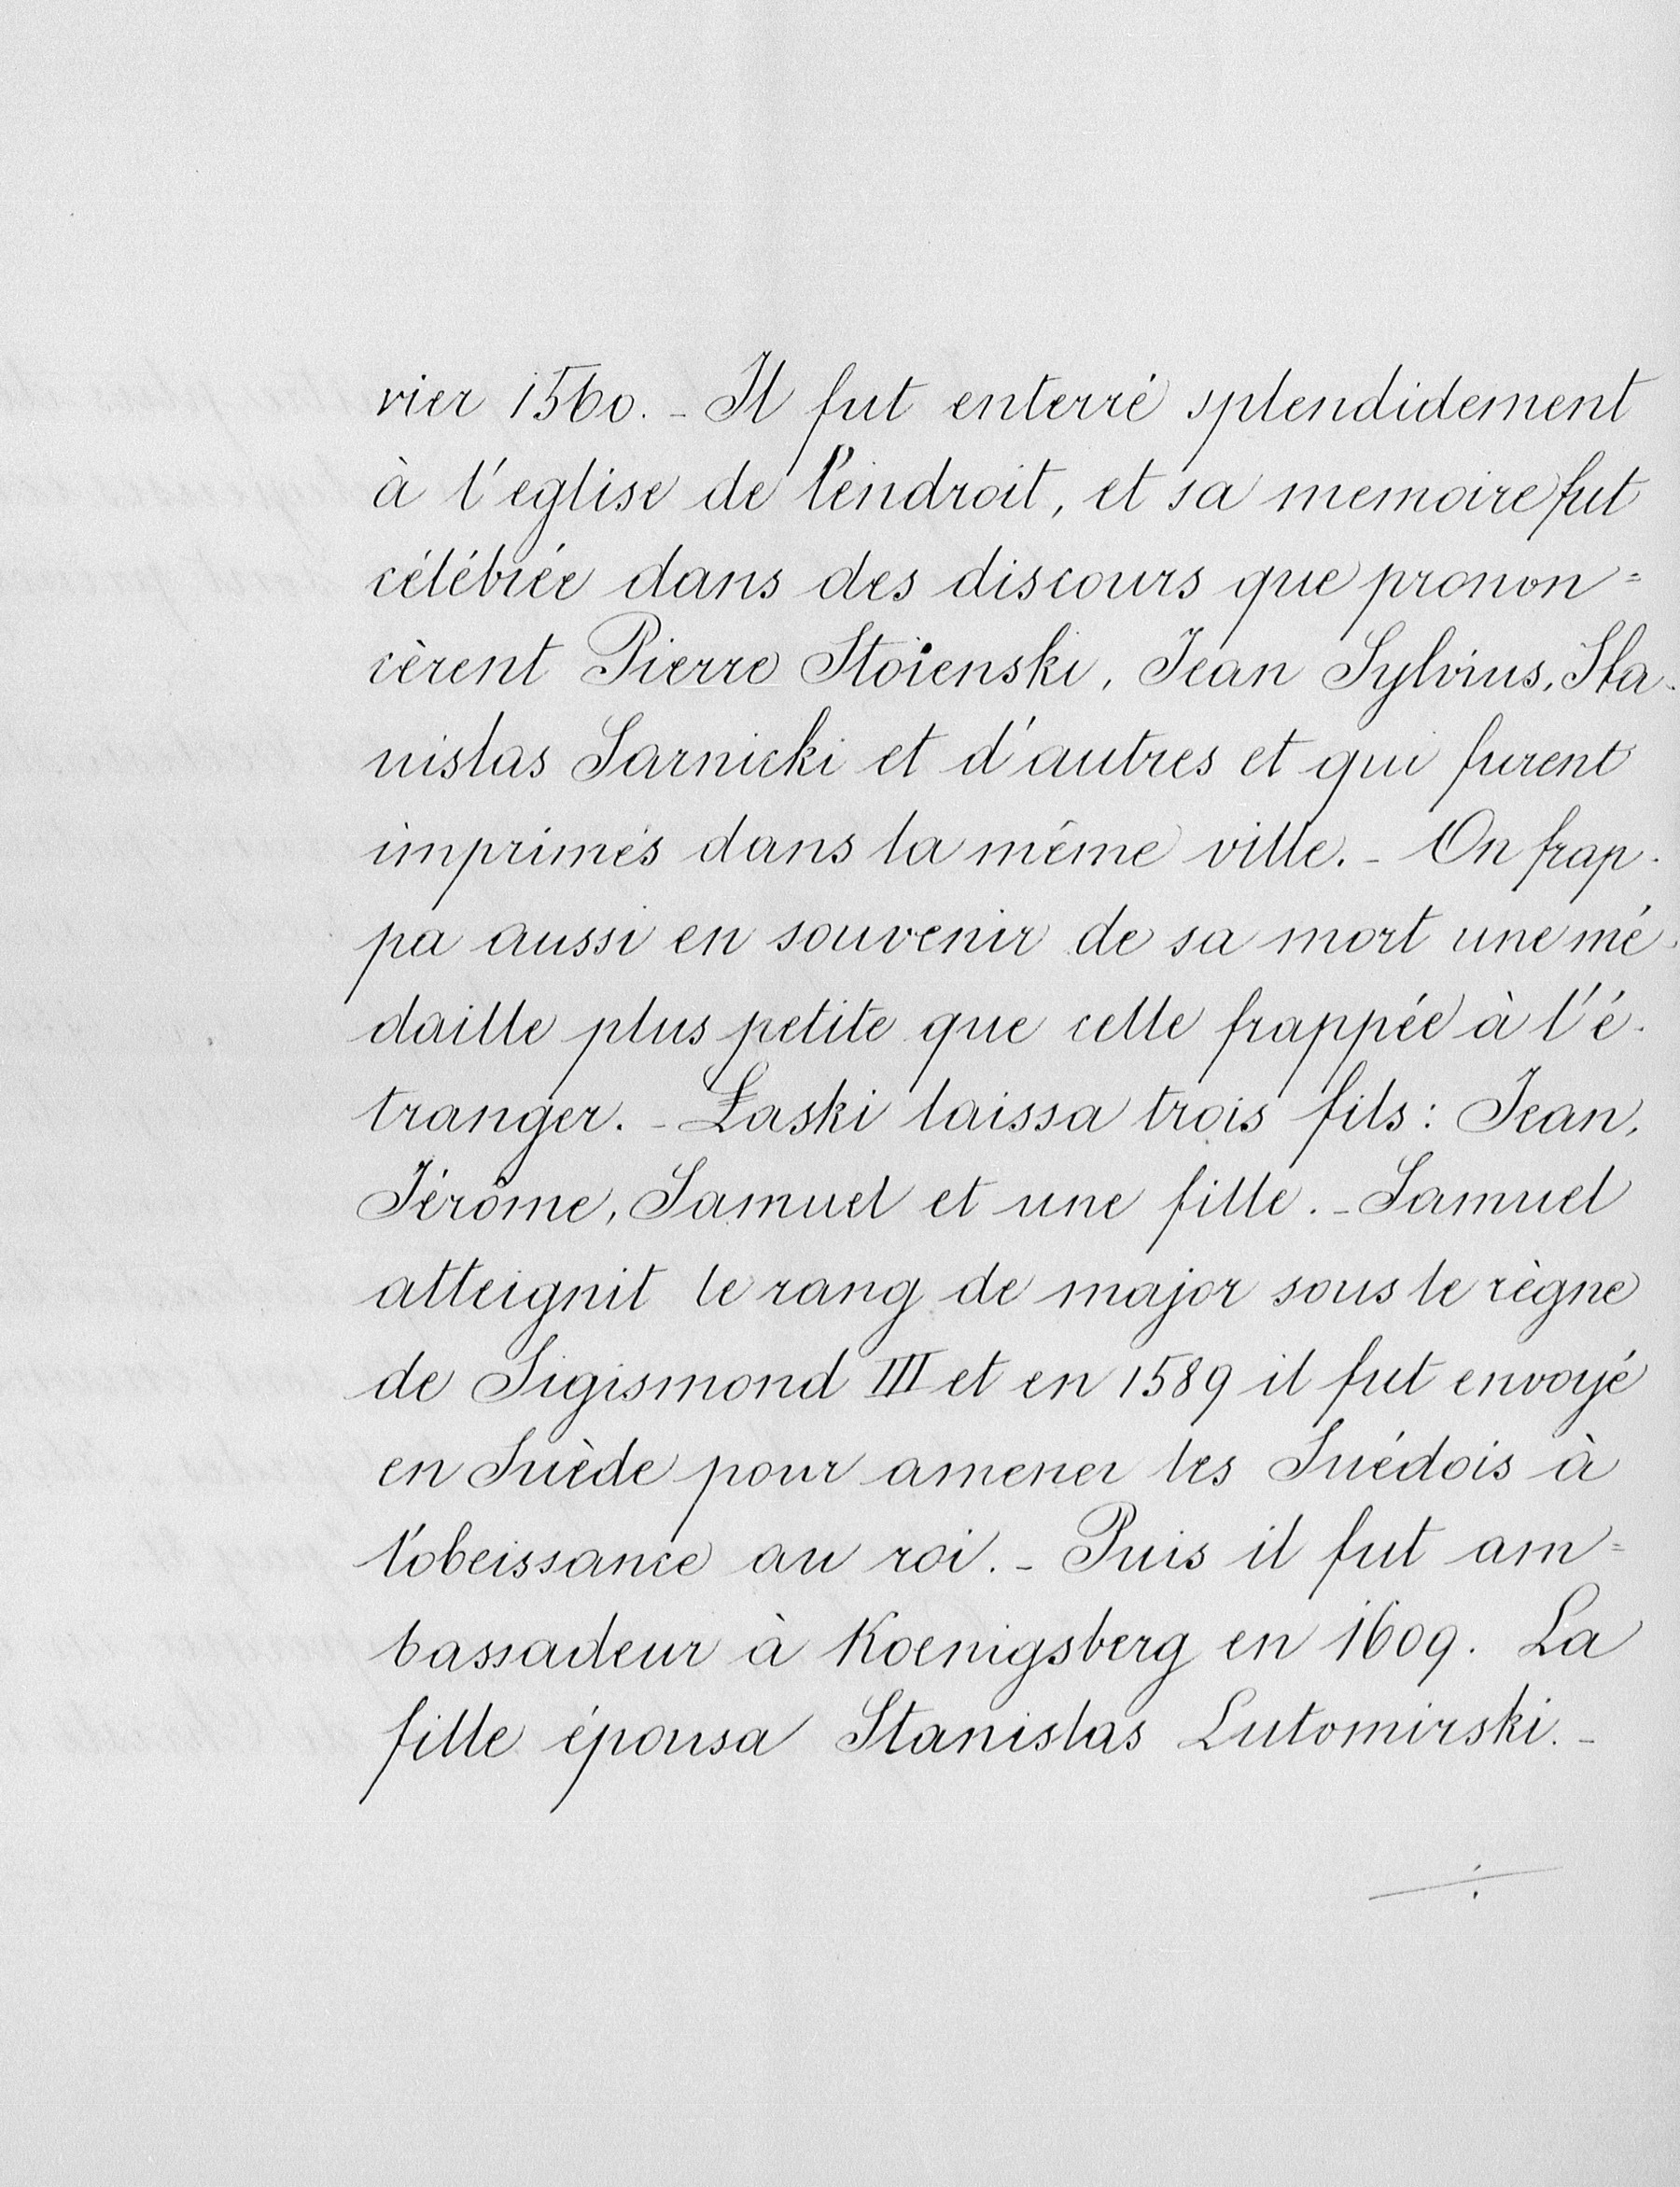 vier 1560. - Il fut enterré splendidement
à l'eglise de l'endroit, et sa memoire fut
célébrée dans des discours que pronon=
cèrent Pierre Stoienski, Jean Sylvius, Sta-
nislas Sarnicki et d'autres et qui furent
imprimés dans la même ville. - On frap-
pa aussi en souvenir de sa mort une mé-
daille plus petite que celle frappée à l'é-
tranger. - Łaski laissa trois fils: Jean,
Jérôme, Samuel et une fille. - Samuel
atteignit le rang de major sous le règne
de Sigismond III et en 1589 il fut envoyé
en Suède pour amener les Suédois à
l'obeissance au roi. - Puis il fut am=
bassadeur à Koenigsberg en 1609. La
fille épousa Stanislas Lutomirski. -